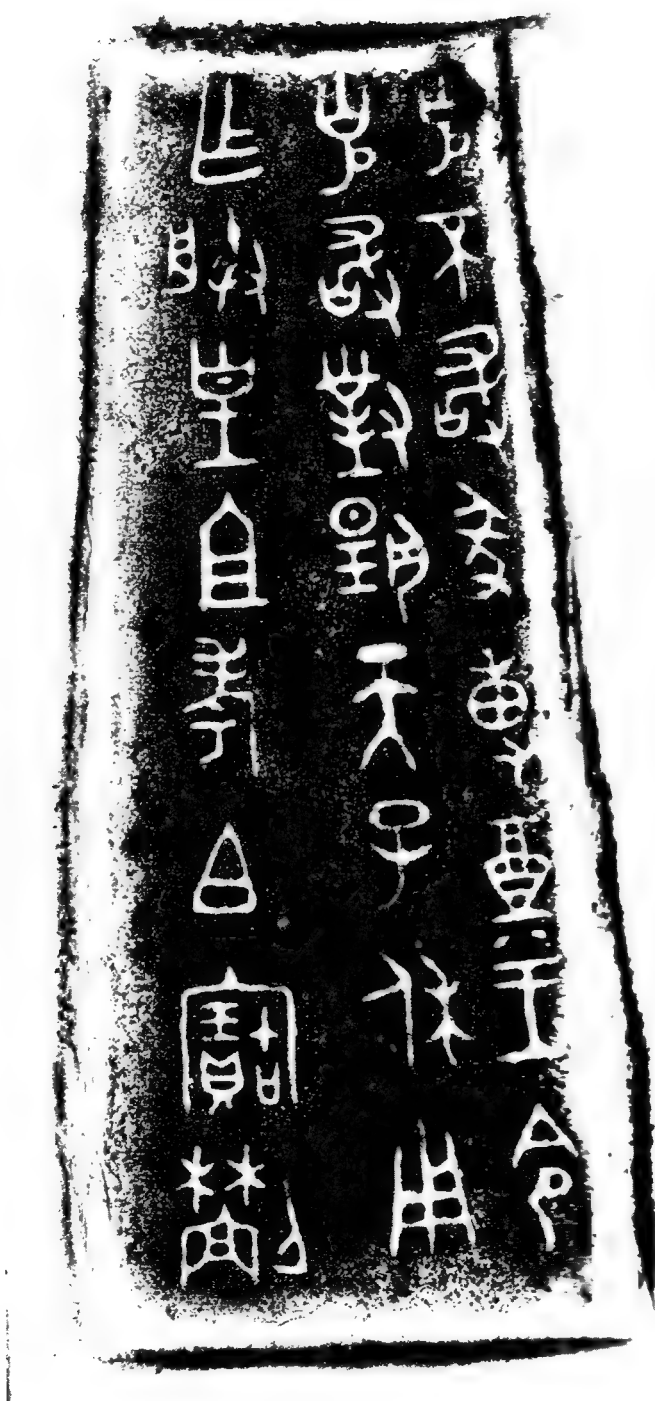 克不敢㒸尃奠王令
克敢對揚天子休用
乍朕皇且考白寶𣞤